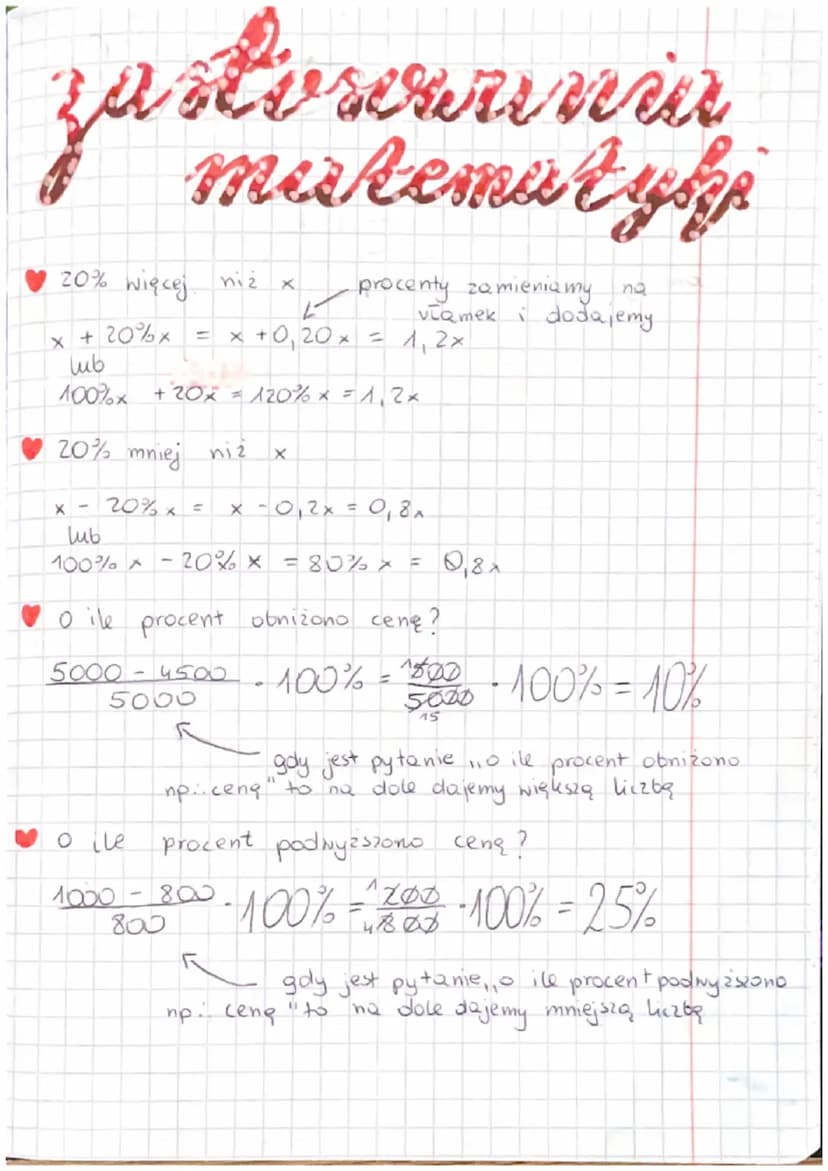 zastosowania
matematyki
20% więcej niż x
procenty zamieniamy na
ułamek i dodajemy
x + 20%x = x + 0,20x = 1,2x
lub
100%x + 20x = 120% x = 1,2x
20% mniej niż x
x - 20%x = x - 0,2x = 0,8x
lub
100% x - 20% x = 80% x = 0,8x
O ile procent obniżono cenę?
5000 - 4500 / 5000 · 100% = 500 / 5000 · 100% = 10%
gdy jest pytanie „o ile procent obniżono
np.: cenę" to na dole dajemy większą liczbę
O ile procent podwyższono cenę?
1000 - 800 / 800 · 100% = 200 / 800 · 100% = 25%
gdy jest pytanie „o ile procent podwyższono
np.: cenę" to na dole dajemy mniejszą liczbę